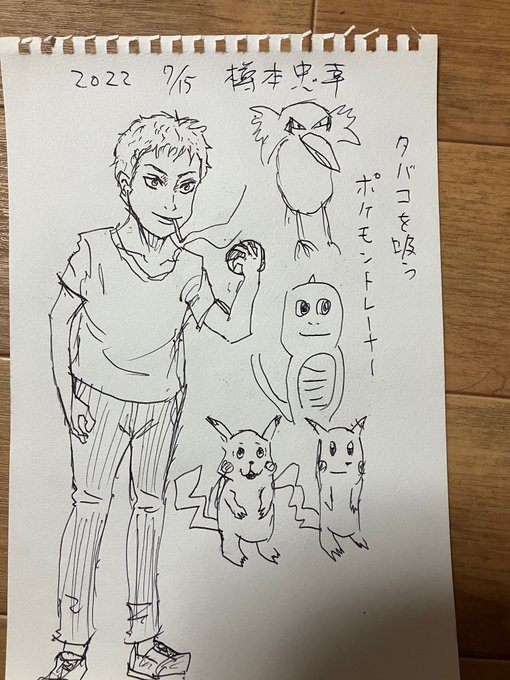 2022 7/15
タバコを吸う
ポケモントレーナー